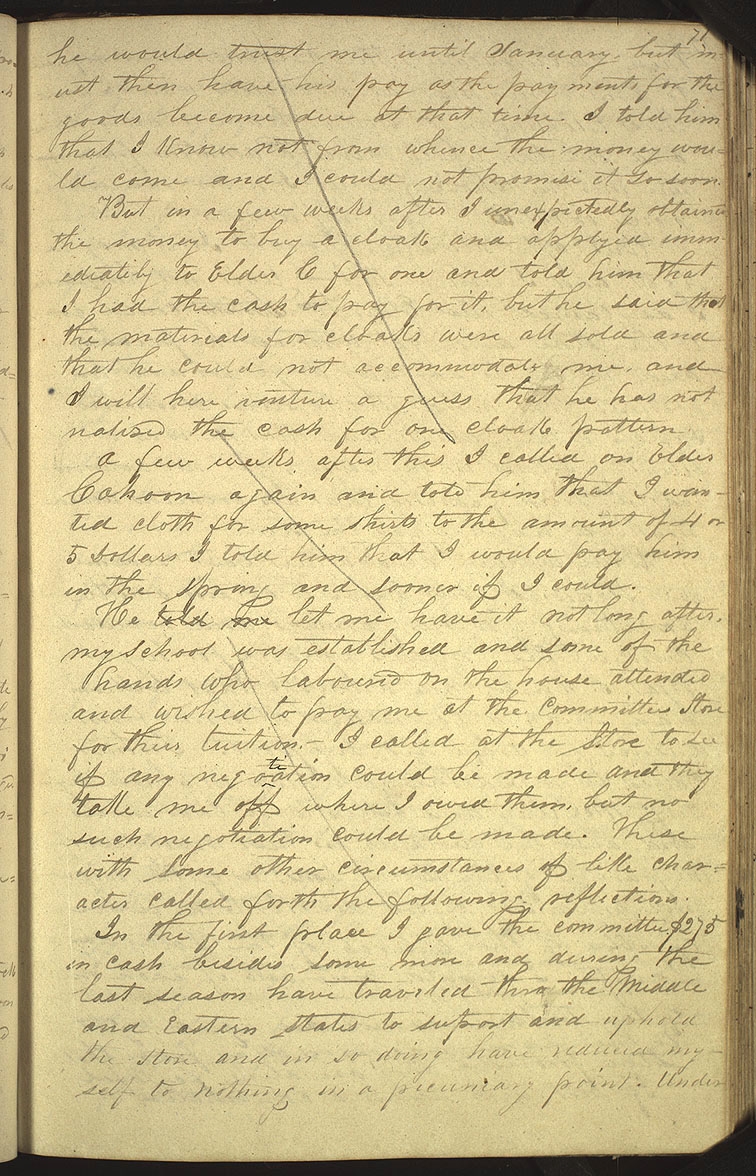 71
he would trust me until January but m-
ust then have his pay as the payments for the
goods become due at that time. I told him
that I know not from whence the money wou-
ld come and I could not promise it so soon.
But in a few weeks after I unexpectedly obtained
the money to buy a cloak and applyed imm-
ediately to Elder C for one and told him that
I had the cash to pay for it, but he said that
the materials for cloaks were all sold and
that he could not accommodate me, and
I will here venture a guess that he has not
realised the cash for one cloak pattern.
A few weeks after this I called on Elder
Cahoon again and told him that I wan-
ted cloth for some shirts to the amount of 4 or
5 Dollars I told him that I would pay him
in the spring and sooner if I could.
He told me let me have it not long after.
my school was established and some of the
hands who laboured on the house attended
and wished to pay me at the Committees Store
for their tuition.- I called at the Store to see
if any negotiation could be made and they
take me off where I owed them, but no
such negotiation could be made. These
with some other circumstances of like char=
acter called forth the following reflections.
In the first place I gave the committee $275
in cash besides some more and during the
last season have traveled thro the Middle
and Eastern states to suport and uphold
the store and in so doing have reduced my-
self to nothing in a pecuniary point. Under